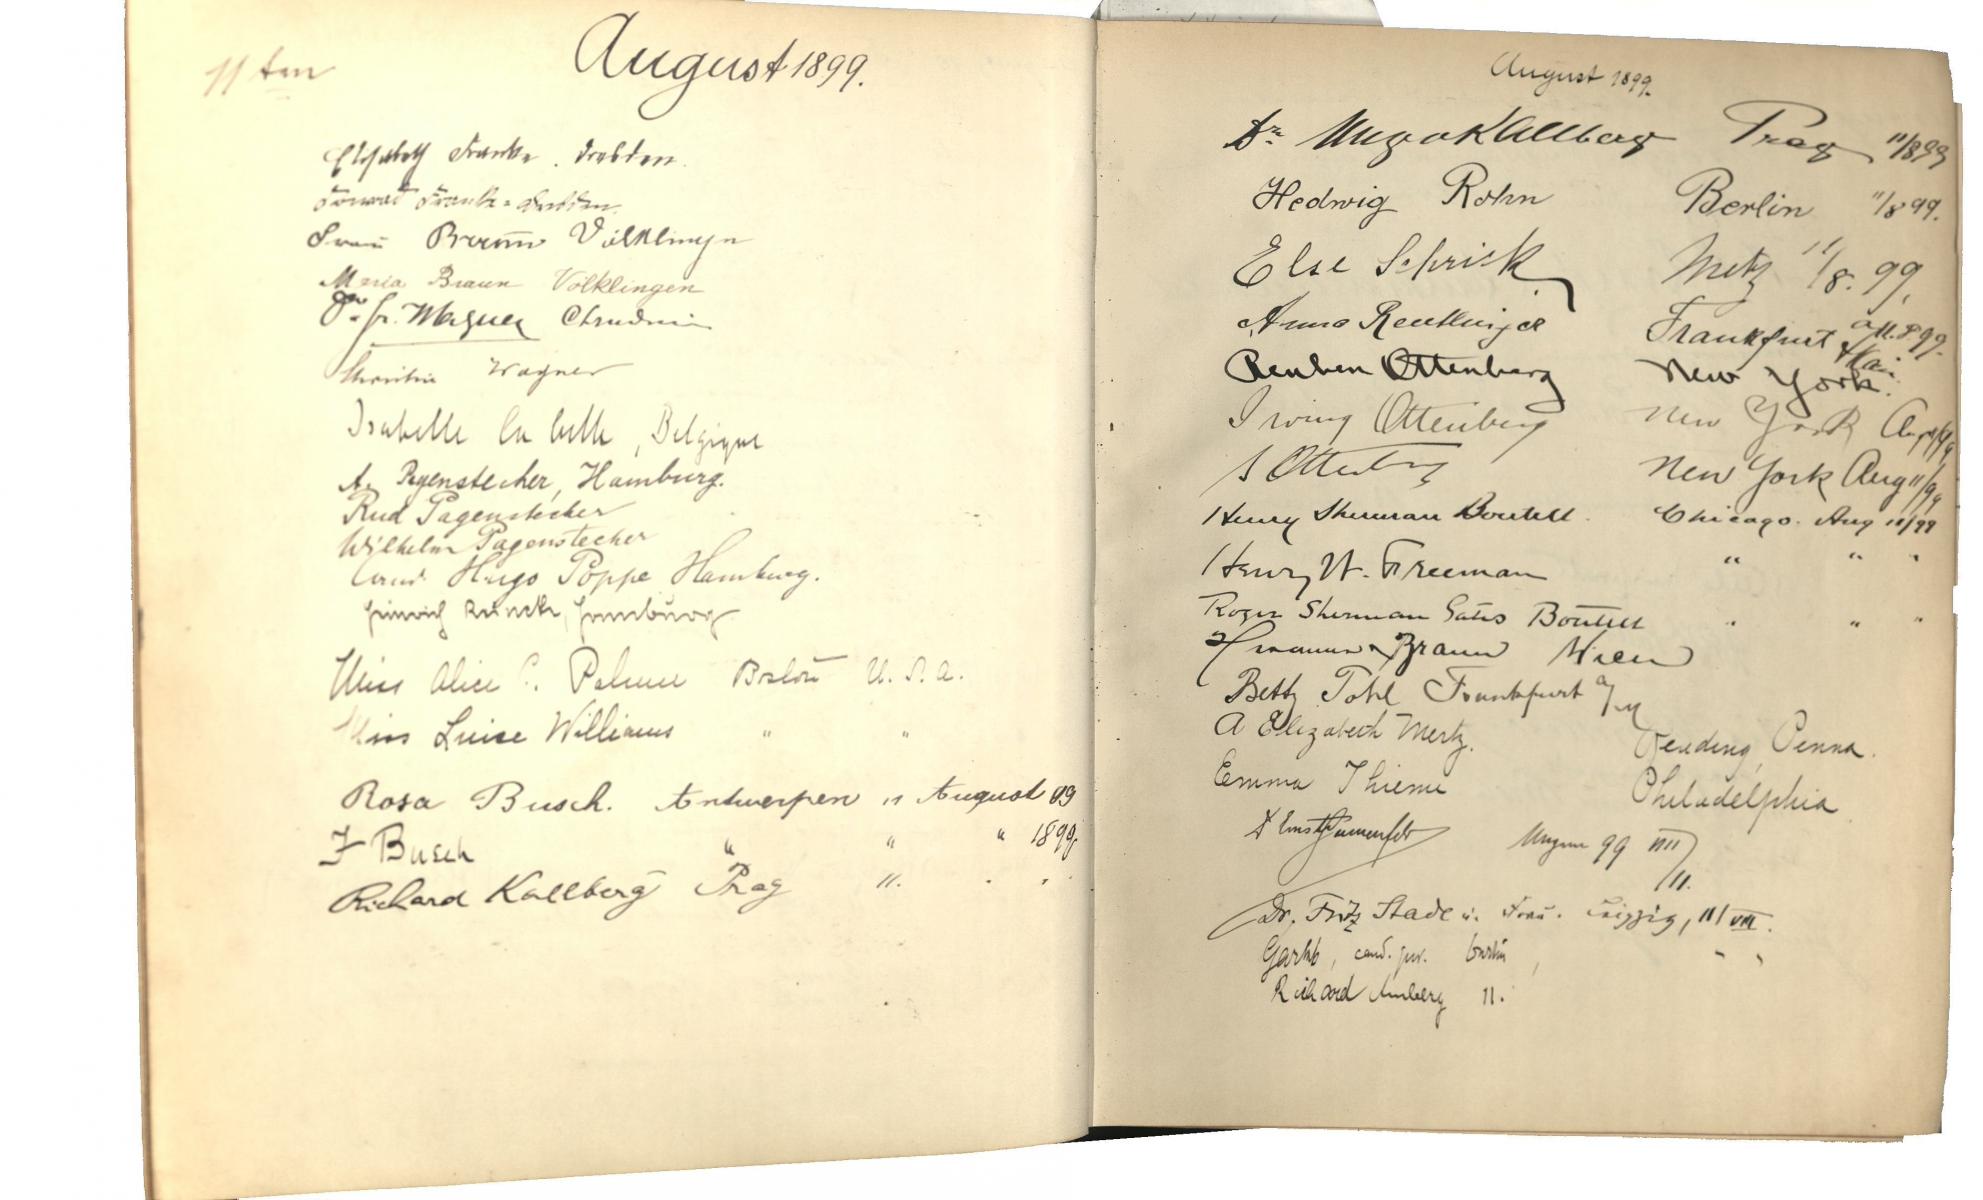 August 1899.
11 ten
Elisabeth Franke. Dresden.
Franke = Dresden.
Frau Braun Völklingen
Maria Braun Völklingen
Dr. Fr. Wagner Chrudim
Wagner
Isabelle la belle, Belgique
A. Pagenstecher, Hamburg.
Rud Pagenstecher
Wilhelm Pagenstecher
Hugo Poppe Hamburg.
Heinrich Hamburg
Miss Alice C. Palmer Boston U.S.A.
Miss Luise Williams " "
Rosa Busch. Antwerpen 11 August 99
F Busch " " " 1899
Richard Kallberg Prag 11. . .
August 1899.
Dr Hugo Kallberg Prag 11/8 99
Hedwig Rohn Berlin 11/8 99.
Else Schrick Metz 11/8. 99.
Anna Reutlinger Frankfurt a/M. 8 99.
Main
Reuben Ottenberg New York.
Irving Ottenberg New York Aug 11/99
S Ottenberg New York Aug 11/99
Henry Sherman Boutell. Chicago. Aug 11/99
Henry W. Freeman " " "
Roger Sherman Gates Boutell " " "
Hermann Braun Wien
Betty Pohl Frankfurt a/M
A Elizabeth Mertz. Reading, Penna.
Emma Thieme Philadelphia
Ernst 99 VIII
/11.
Dr. Fritz Stade u. Frau. Leipzig, 11/VIII.
cand. jur. Berlin, " "
Richard Amberg 11.